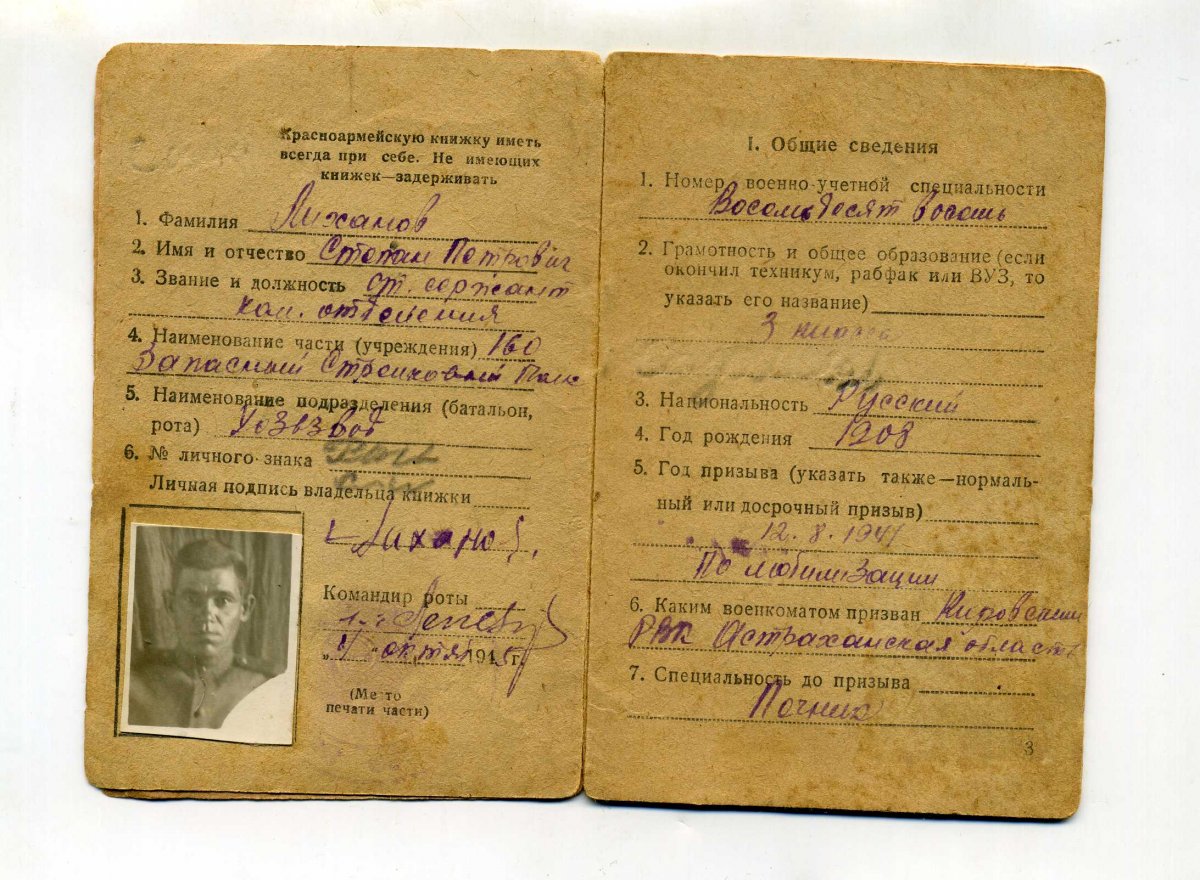 Красноармейскую книжку иметь
всегда при себе. Не имеющих
книжек—задерживать
1. Фамилия Лиханов
2. Имя и отчество Степан Петрович
3. Звание и должность ст. сержант
ком. отделения
4. Наименование части (учреждения) 160
Запасный Стрелковый Полк
5. Наименование подразделения (батальон,
рота)
6. № личного знака
Личная подпись владельца книжки
Лиханов.
Командир роты
" октяб 194 г.
(Место
печати части)
I. Общие сведения
1. Номер военно-учетной специальности
Восемьдесят восемь
2. Грамотность и общее образование (если
окончил техникум, рабфак или ВУЗ, то
указать его название)
3 класса
3. Национальность Русский
4. Год рождения 1908
5. Год призыва (указать также—нормаль-
ный или досрочный призыв)
12.8.1941
По мобилизации
6. Каким военкоматом призван Кировским
РВК Астраханская область
7. Специальность до призыва
Печник
3